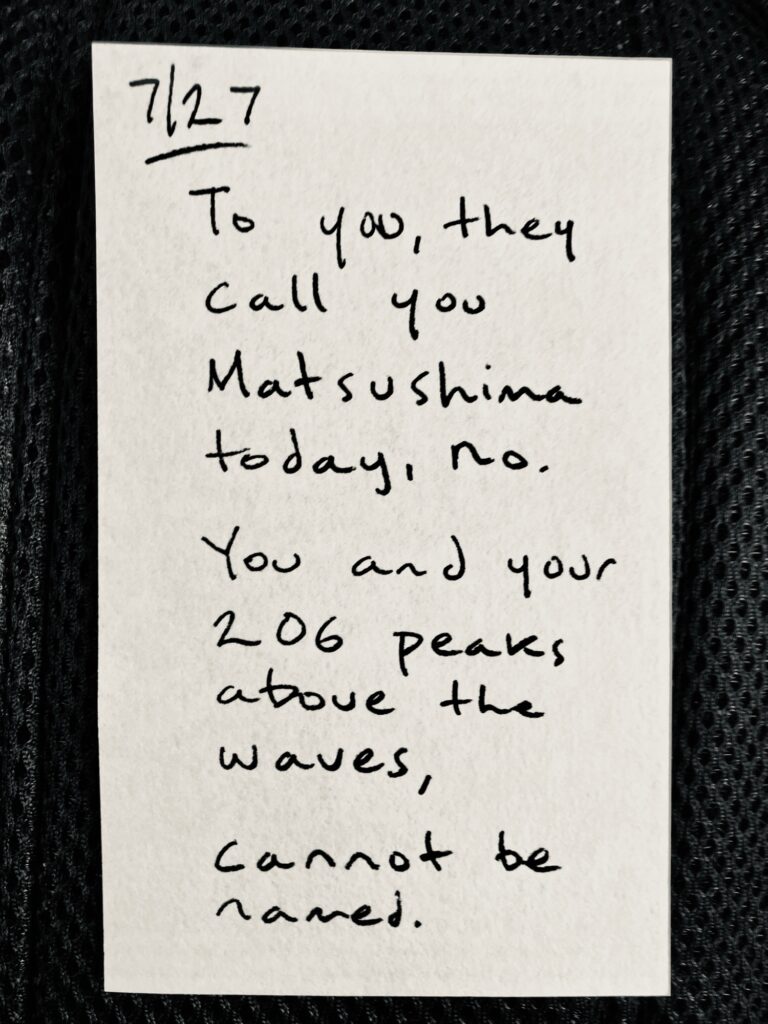 7/27
To you, they
call you
Matsushima
today, no.
You and your
206 peaks
above the
waves,
cannot be
named.